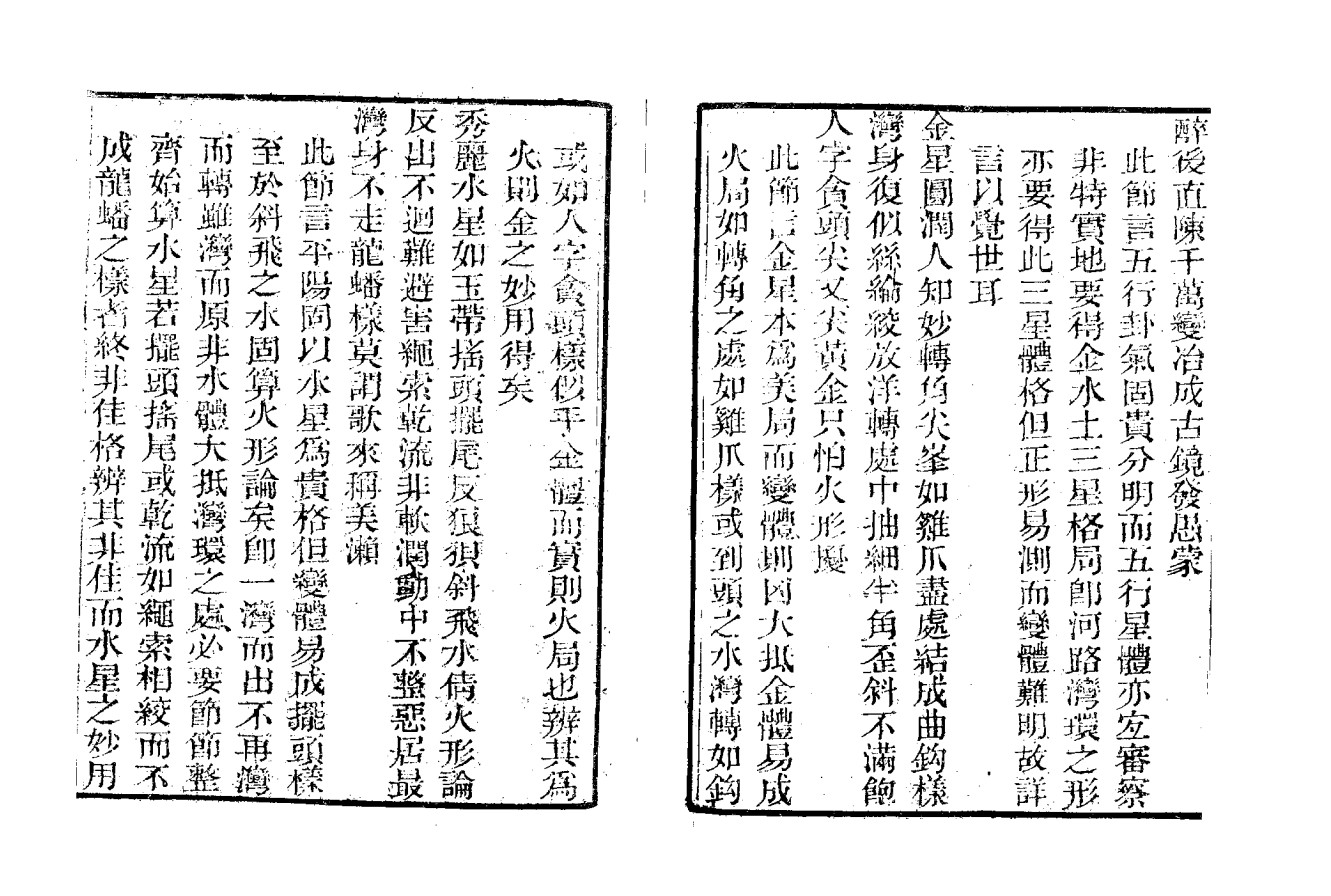 醉後直陳千萬變冶成古鏡發愚蒙
此節言五行卦氣固貴分明而五行星體亦宜審察
非特實地要得金水土三星格局卽河路灣環之形
亦要得此三星體格但正形易測而變體難明故詳
言以覺世耳
金星圓潤人知妙轉角尖峯如雞爪盡處結成曲鈎樣
灣身復似絲綸綾放洋轉處中抽細牛角歪斜不滿飽
人字貪頭尖又尖黃金只怕火形擾
此節言金星本爲美局而變體則凶大抵金體易成
火局如轉角之處如雞爪樣或到頭之水灣轉如鈎
或如人字貪頭樣似乎金體而實則火局也辨其爲
火則金之妙用得矣
秀麗水星如玉帶搖頭擺尾反狼狽斜飛水倩火形論
反出不迴難避害繩索乾流非軟潤動中不整惡居最
灣身不走龍蟠樣莫謂歌來稱美瀨
此節言平陽固以水星爲貴格但變體易成擺頭樣
至於斜飛之水固算火形論矣卽一灣而出不再灣
而轉雖灣而原非水體大抵灣環之處必要節節整
齊始算水星若擺頭搖尾或乾流如繩索相絞而不
成龍蟠之樣者終非佳格辨其非佳而水星之妙用